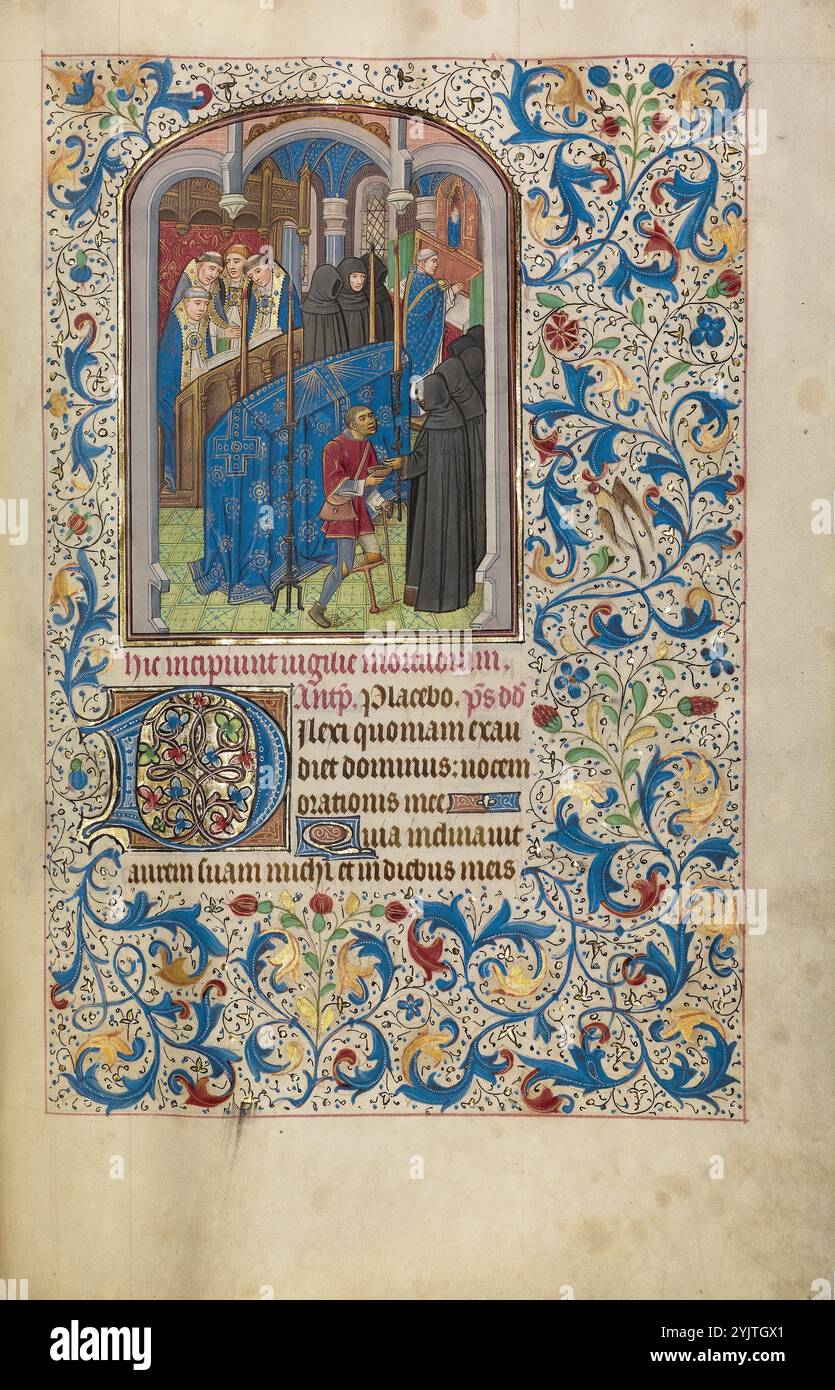 hic incipiunt uigilie mortuorum.
Antp̃. Placebo. p̃s dd̃
Dilexi quoniam exau
diet dominus: uocem
orationis mee
Quia inclinauit
aurem suam michi et in diebus meis
alamy
Image ID: 2YJTGX1
www.alamy.com